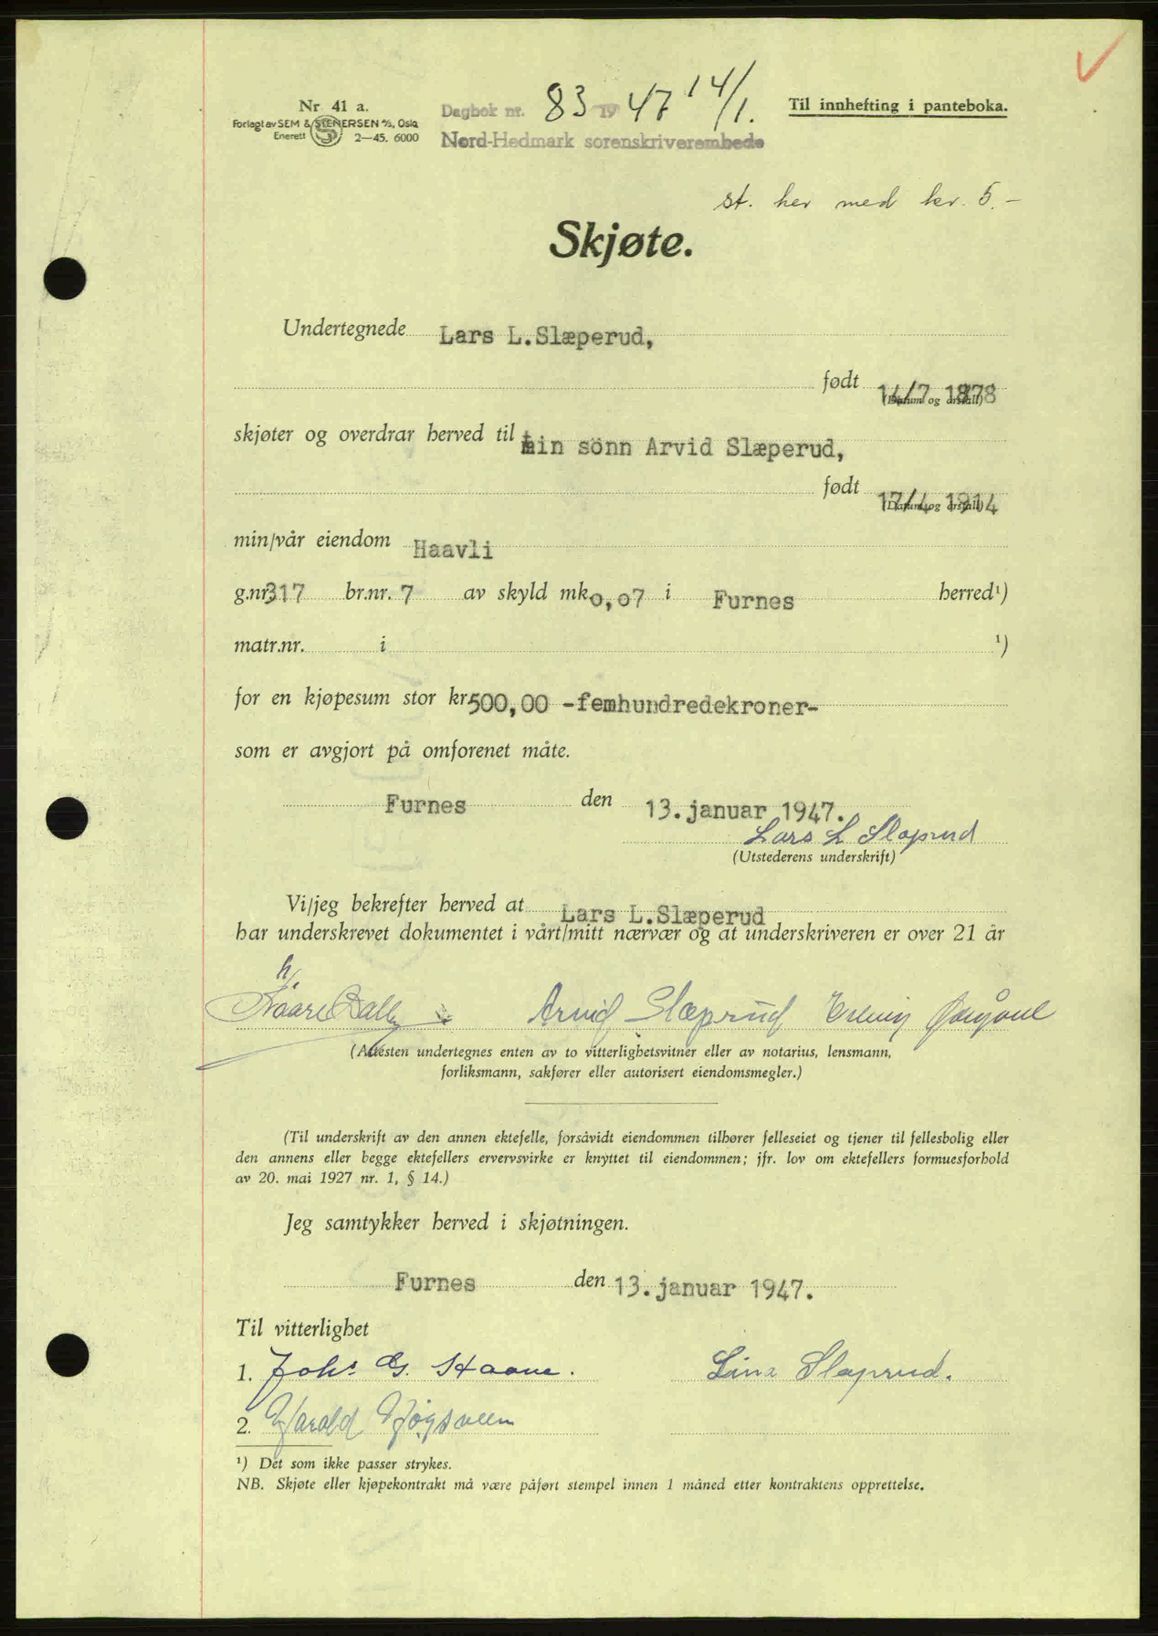 Nr. 41 a.
Forlagt av SEM & STENERSEN A/S, Oslo
Enerett 2—45. 6000
Dagbok nr. 83 1947 14/1.
Nord-Hedmark sorenskriverembede
Til innhefting i panteboka.
st. her med kr. 5.-
Skjøte.
Undertegnede Lars L.Slæperud,
født 14/7 1878
(Datum og årstall)
skjøter og overdrar herved til min sönn Arvid Slæperud,
født 17/4 1914
(Datum og årstall)
min/vår eiendom Haavli
g.nr. 317 br.nr. 7 av skyld mk. 0,07 i Furnes herred¹)
matr.nr. i ¹)
for en kjøpesum stor kr. 500,00 -femhundredekroner-
som er avgjort på omforenet måte.
Furnes den 13.januar 1947.
Lars L Slaprud
(Utstederens underskrift)
Vi/jeg bekrefter herved at Lars L.Slæperud
har underskrevet dokumentet i vårt/mitt nærvær og at underskriveren er over 21 år
Kaare Arvid Slæprud
(Attesten undertegnes enten av to vitterlighetsvitner eller av notarius, lensmann,
forliksmann, sakfører eller autorisert eiendomsmegler.)
(Til underskrift av den annen ektefelle, forsåvidt eiendommen tilhører felleseiet og tjener til fellesbolig eller
den annens eller begge ektefellers ervervsvirke er knyttet til eiendommen; jfr. lov om ektefellers formuesforhold
av 20. mai 1927 nr. 1, § 14.)
Jeg samtykker herved i skjøtningen.
Furnes den 13.januar 1947.
Til vitterlighet
1. Johs G. Haave. Lina Slaprud.
2. Harald Høgsveen
¹) Det som ikke passer strykes.
NB. Skjøte eller kjøpekontrakt må være påført stempel innen 1 måned etter kontraktens opprettelse.